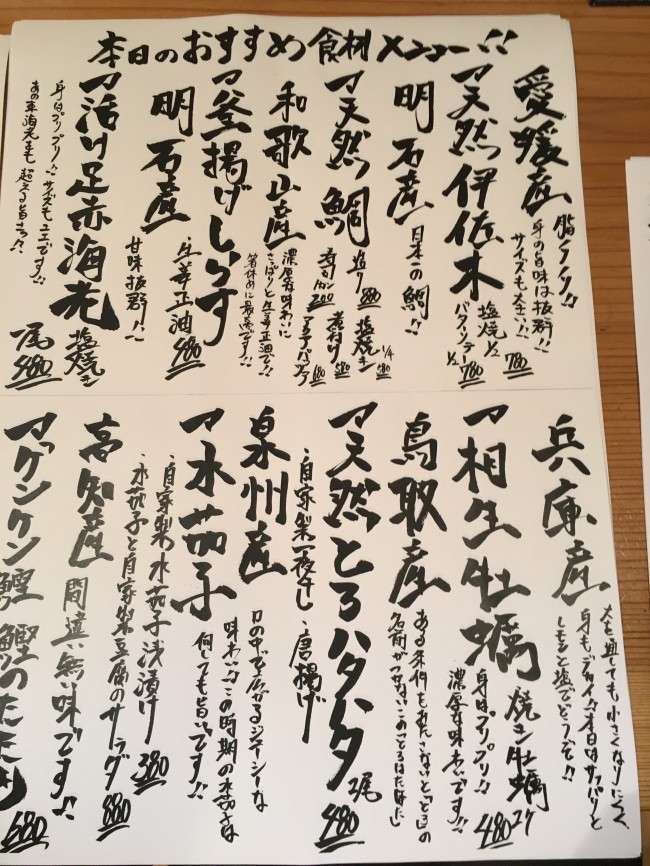 本日のおすすめ食材メニュー!!
愛媛産
脂ノリノリ!!
身の旨味は抜群!!
サイズも大きい!!
マ天然伊佐木
塩焼 1/2 780
バタソテー 1/2 780
明石産
日本一の鯛!!
マ天然鯛
塩焼き 1/4 580
煮付け 580
和歌山産
濃厚な味わいに
さっぱりと生姜正油で!!
箸休めに最適です!!
マ釜揚げしらす
生姜正油 480
明石産
甘味抜群!!
マ活け足赤海老
塩焼き
1尾 480
身はプリップリ!!サイズも
あの車海老をも超える旨さ!!
兵庫産
火を通しても小さくなりにくく、
身もデカイ!!本日はサッパリと
レモンと塩でどうぞ!!
マ相生牡蠣
焼き牡蠣 2ケ 480
身はプリップリ!!
濃厚な味わいです!!
鳥取産
ある条件をみたさないと「とろ」の
名前がつかないこのとろはたは
マ天然とろハタハタ
2尾 480
・自家製一夜干し ・唐揚げ
泉州産
口の中で広がるジューシーな
味わい!!この時期の水茄子は
何しても旨いです!!
マ水茄子
・自家製水茄子浅漬け 380
・水茄子と自家製豆腐のサラダ 880
高知産
間違い無い味です!!
マケンケン鰹 鰹のたたき
680